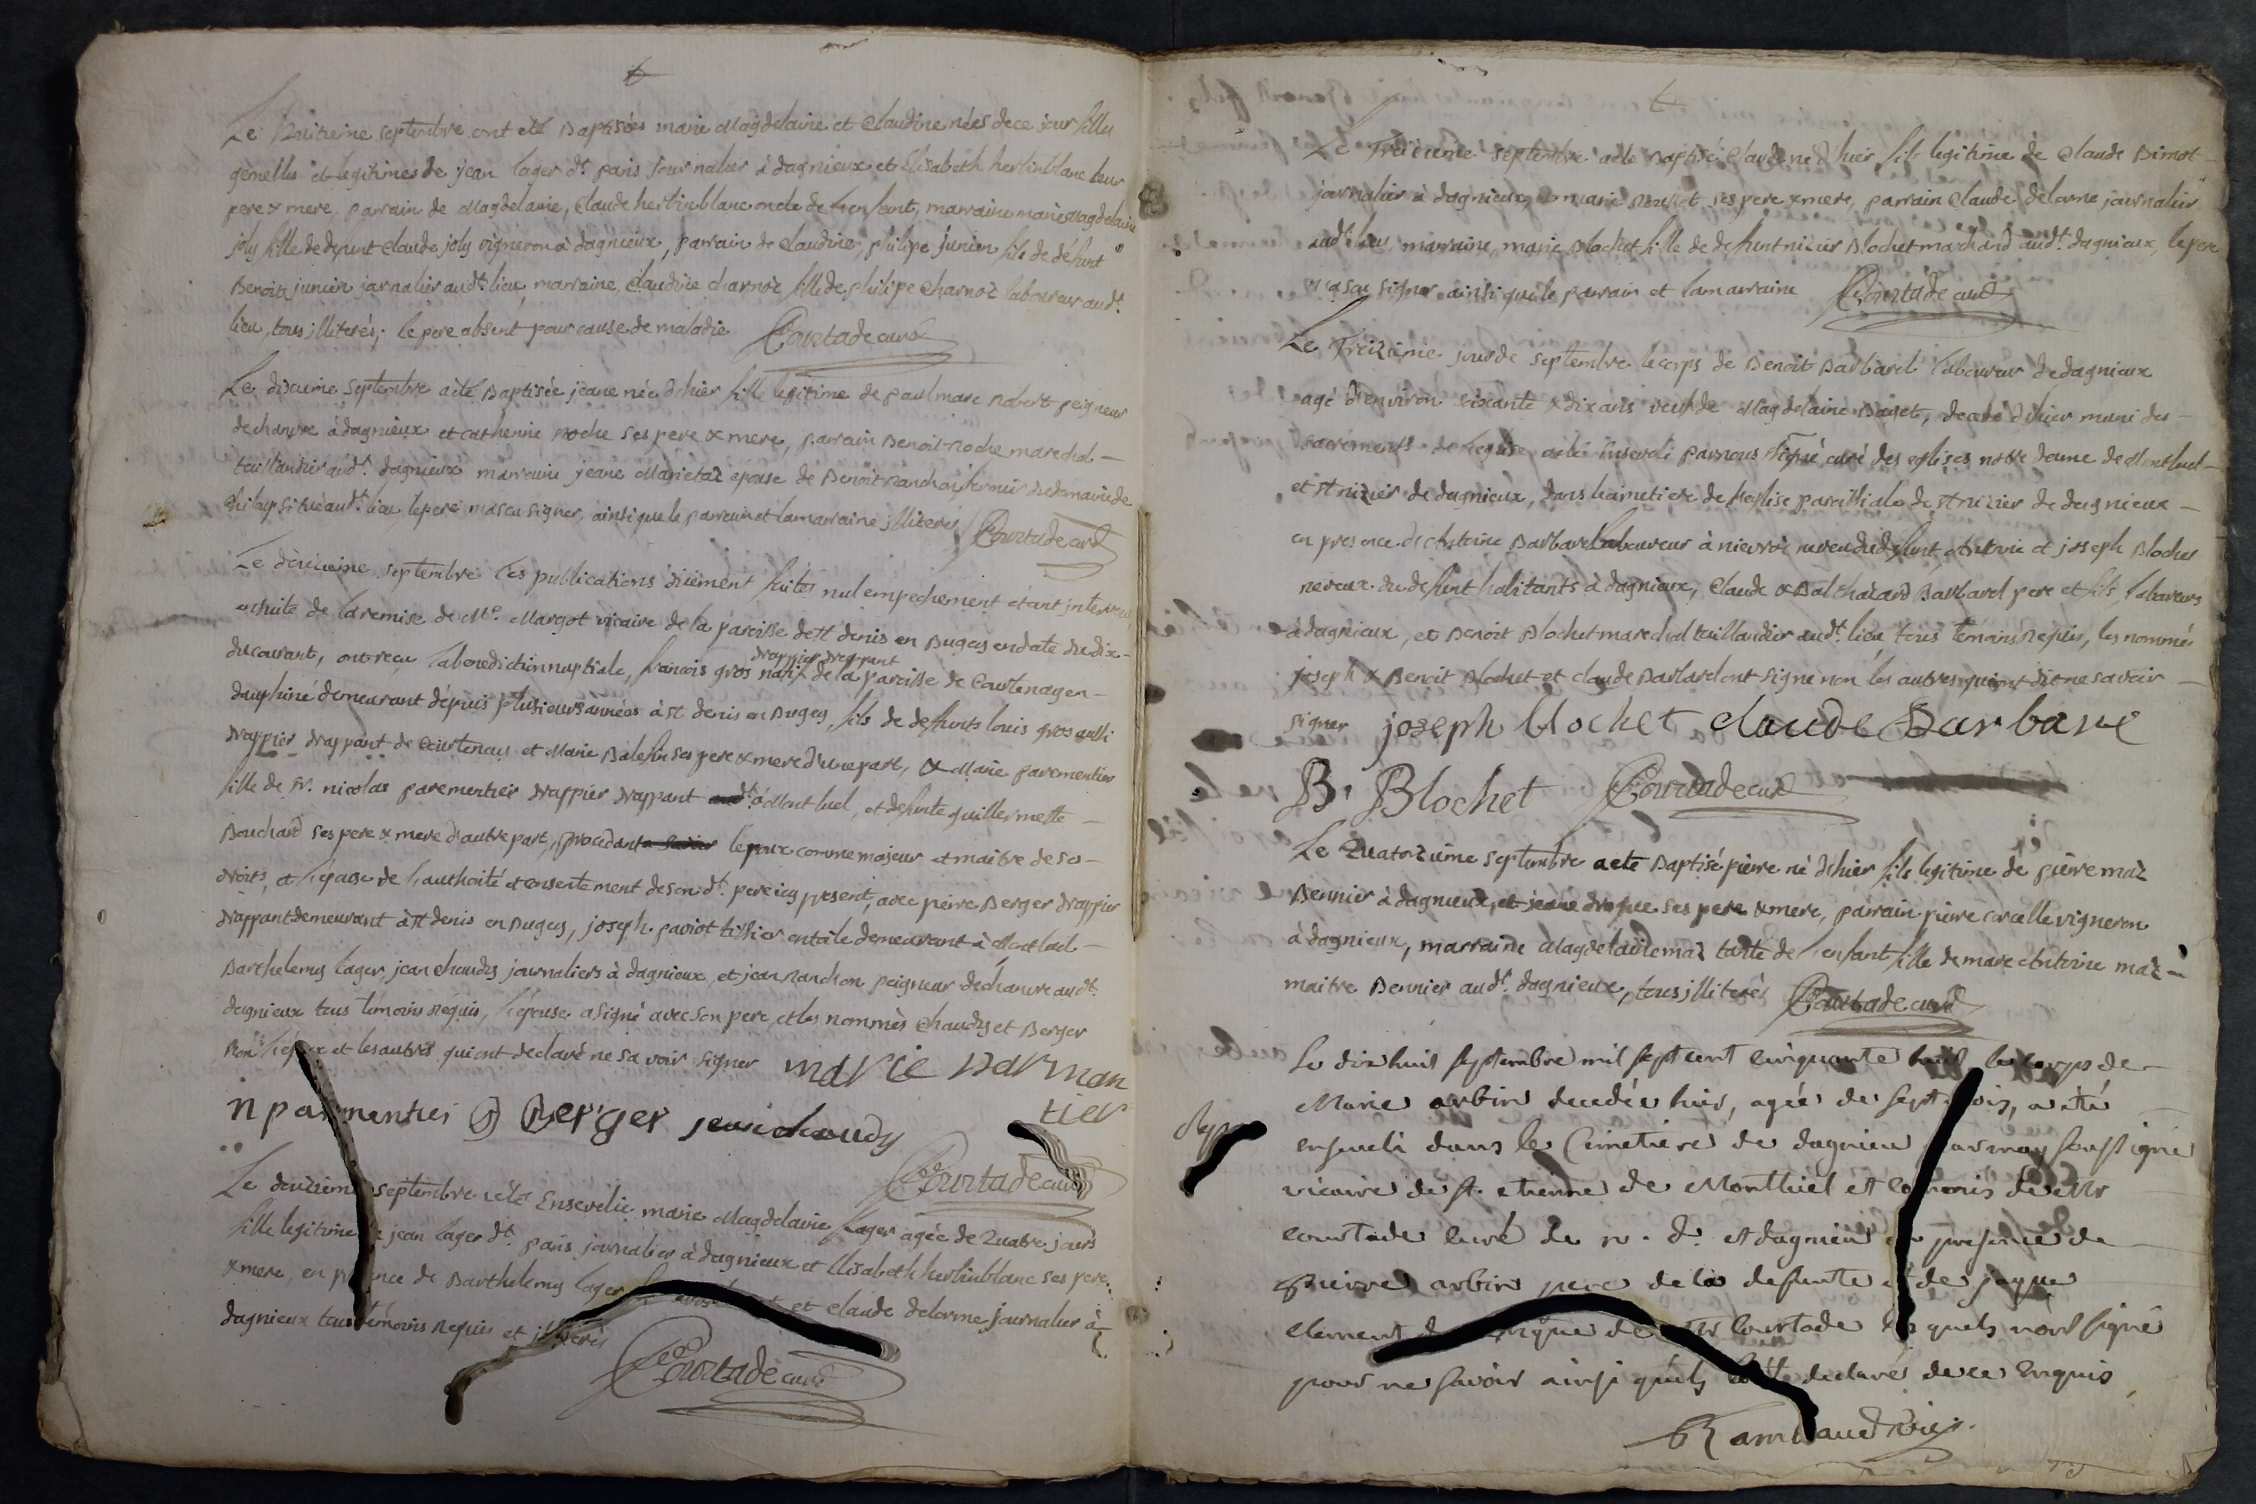 Le huitieme septembre ont eté Baptisées marie Magdelaine et Claudine nées de ce jour filles
gemelles et legitimes de jean lager dt. paris journalier à dagnieux et Elisabeth herlinblanc leur
pere & mere, parrain de Magdelaine, Claude herlinblanc oncle de l'enfant, marraine marie Magdelaine
joly fille de defunt Claude joly vigneron à dagnieux, parrain de Claudine, philipe junien fils de défunt
Benoit junien jornalier audt. lieu, marraine, Claudine charnoz fille de philipe Charnoz laboureur audt.
lieu, tous illiterés; le pere absent pour cause de maladie Courtade curé
Le dixieme septembre a eté Baptisée jeane née d'hier fille legitime de paul marc Robert peigneur
de chanvre à dagnieux et catherine Roche ses pere & mere, parrain Benoit Roche marechal
taillandier audt. dagnieux marraine jeane Marietaz épouse de Benoit Ranchon fermier du domaine de
situé audt. lieu, le pere n'a scu signer, ainsi que le parrain et la marraine illiterés Courtade curé
Le douzieme septembre les publications düement faites nul empechement etant intervenu
ensuite de la remise de Mr. Margot vicaire de la paroisse de st denis en Bugey en date du dix
du courant, ont reçu la benediction nuptiale, francois gros natif de la paroisse de Courtenay en
drappier drappant
dauphiné demeurant depuis plusieurs années à st denis en Bugey, fils de defunts louis gros aussi
drappier drappant de Courtenay et Marie Balefin ses pere & mere d'une part, & Marie parementier
fille de Sr. nicolas parementier drappier drappant à Montluel, et defunte guillermette
Bouchard ses pere & mere d'autre part, procedant l'epoux comme majeur et maitre de ses
droits, et l'épouse de l'authorité et consentement de son dt. pere icy present, avec pierre Berger drappier
drappant demeurant à st denis en Bugey, joseph paviot tissier en toile demeurant à Montluel
Barthelemy lager, jean chaudy journaliers à dagnieux, et jean Ranchon peigneur de chanvre audt.
dagnieux tous témoins requis, l'épouse a signé avec son pere, et les nommés Chaudy et Berger
non l'époux et les autres qui ont declaré ne savoir signer marie parman
tier
n parmentier P Berger jean chaudy
Courtade curé
Le douzieme septembre a eté Ensevelie marie Magdelaine lager agée de Quatre jours
fille legitime de jean lager dt. paris jornalier à dagnieux et Elisabeth herlinblanc ses pere
& mere, en presence de Barthelemy lager et Claude delorme journalier à
dagnieux tous témoins requis et illiterés
Courtade curé
Le Treizieme septembre a eté Baptisé Claude né d'hier fils legitime de Claude Bimot
jornalier à dagnieux, et marie ses pere & mere, parrain Claude delorme jornalier
audt. lieu, marraine, marie Blochet fille de defunt nizier Blochet marchand audt. dagnieux, le pere
n'a scu signer ainsi que le parrain et la marraine Courtade curé
Le Treizieme jour de septembre le corps de Benoit Barbaret laboureur de dagnieux
agé d'environ soixante & dix ans veuf de Magdelaine, decedé d'hier muni des
sacrements de l'eglise a eté Enseveli par nous curé des eglises notre dame de Montluel
et st nizier de dagnieux, dans le cimetiere de l'eglise parroissiale de st nizier de dagnieux
en presence d'Antoine Barbaret laboureur à nievroz neveu du defunt, Antoine et joseph Blochet
neveux du defunt habitants à dagnieux, Claude & Balthazard Barbaret pere et fils, laboureurs
à dagnieux, et Benoit Blochet marechal taillandier audt. lieu tous témoins requis, les nommés
joseph & Benoit Blochet et claude Barbaret ont signé non les autres qui ont dit ne savoir
signer joseph blochet claude Barbaret
B. Blochet Courtade curé
Le Quatorzieme septembre a eté Baptisé pierre né d'hier fils legitime de pierre maz
Bennier à dagnieux, et jeane ses pere & mere, parrain pierre corcelle vigneron
à dagnieux, marraine Magdelaine maz tante de l'enfant fille de marc Antoine maz
maitre Bennier audt. dagnieux, tous illiterés Courtade curé
Le dix huit septembre mil sept cent cinquante huit, le corps de
Marie arbin decedée hier, agée de sept mois, a eté
enseveli dans le Cimetiere de dagnieu par moy soussigné
vicaire de st. etienne de Montluel et commis de Mr
courtade curé de n. d. et dagnieu en presence de
pierre arbin pere de la defunte et de jaque
clement de Mr Courtade lesquels n'ont signé
pour ne savoir ainsi qu'ils ont declaré de ce enquis
Rambaud vic.